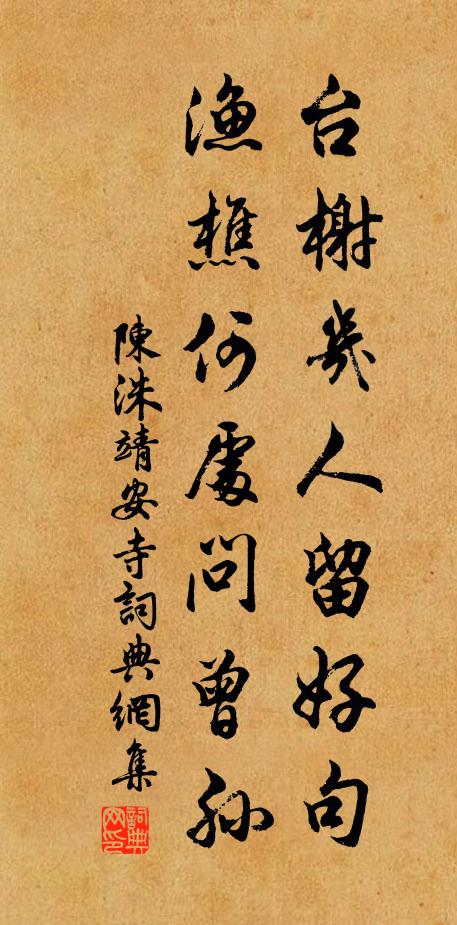 台榭幾人留好句
漁樵何處問曾孫
陳洙靖安寺詞典網集
詞典网印